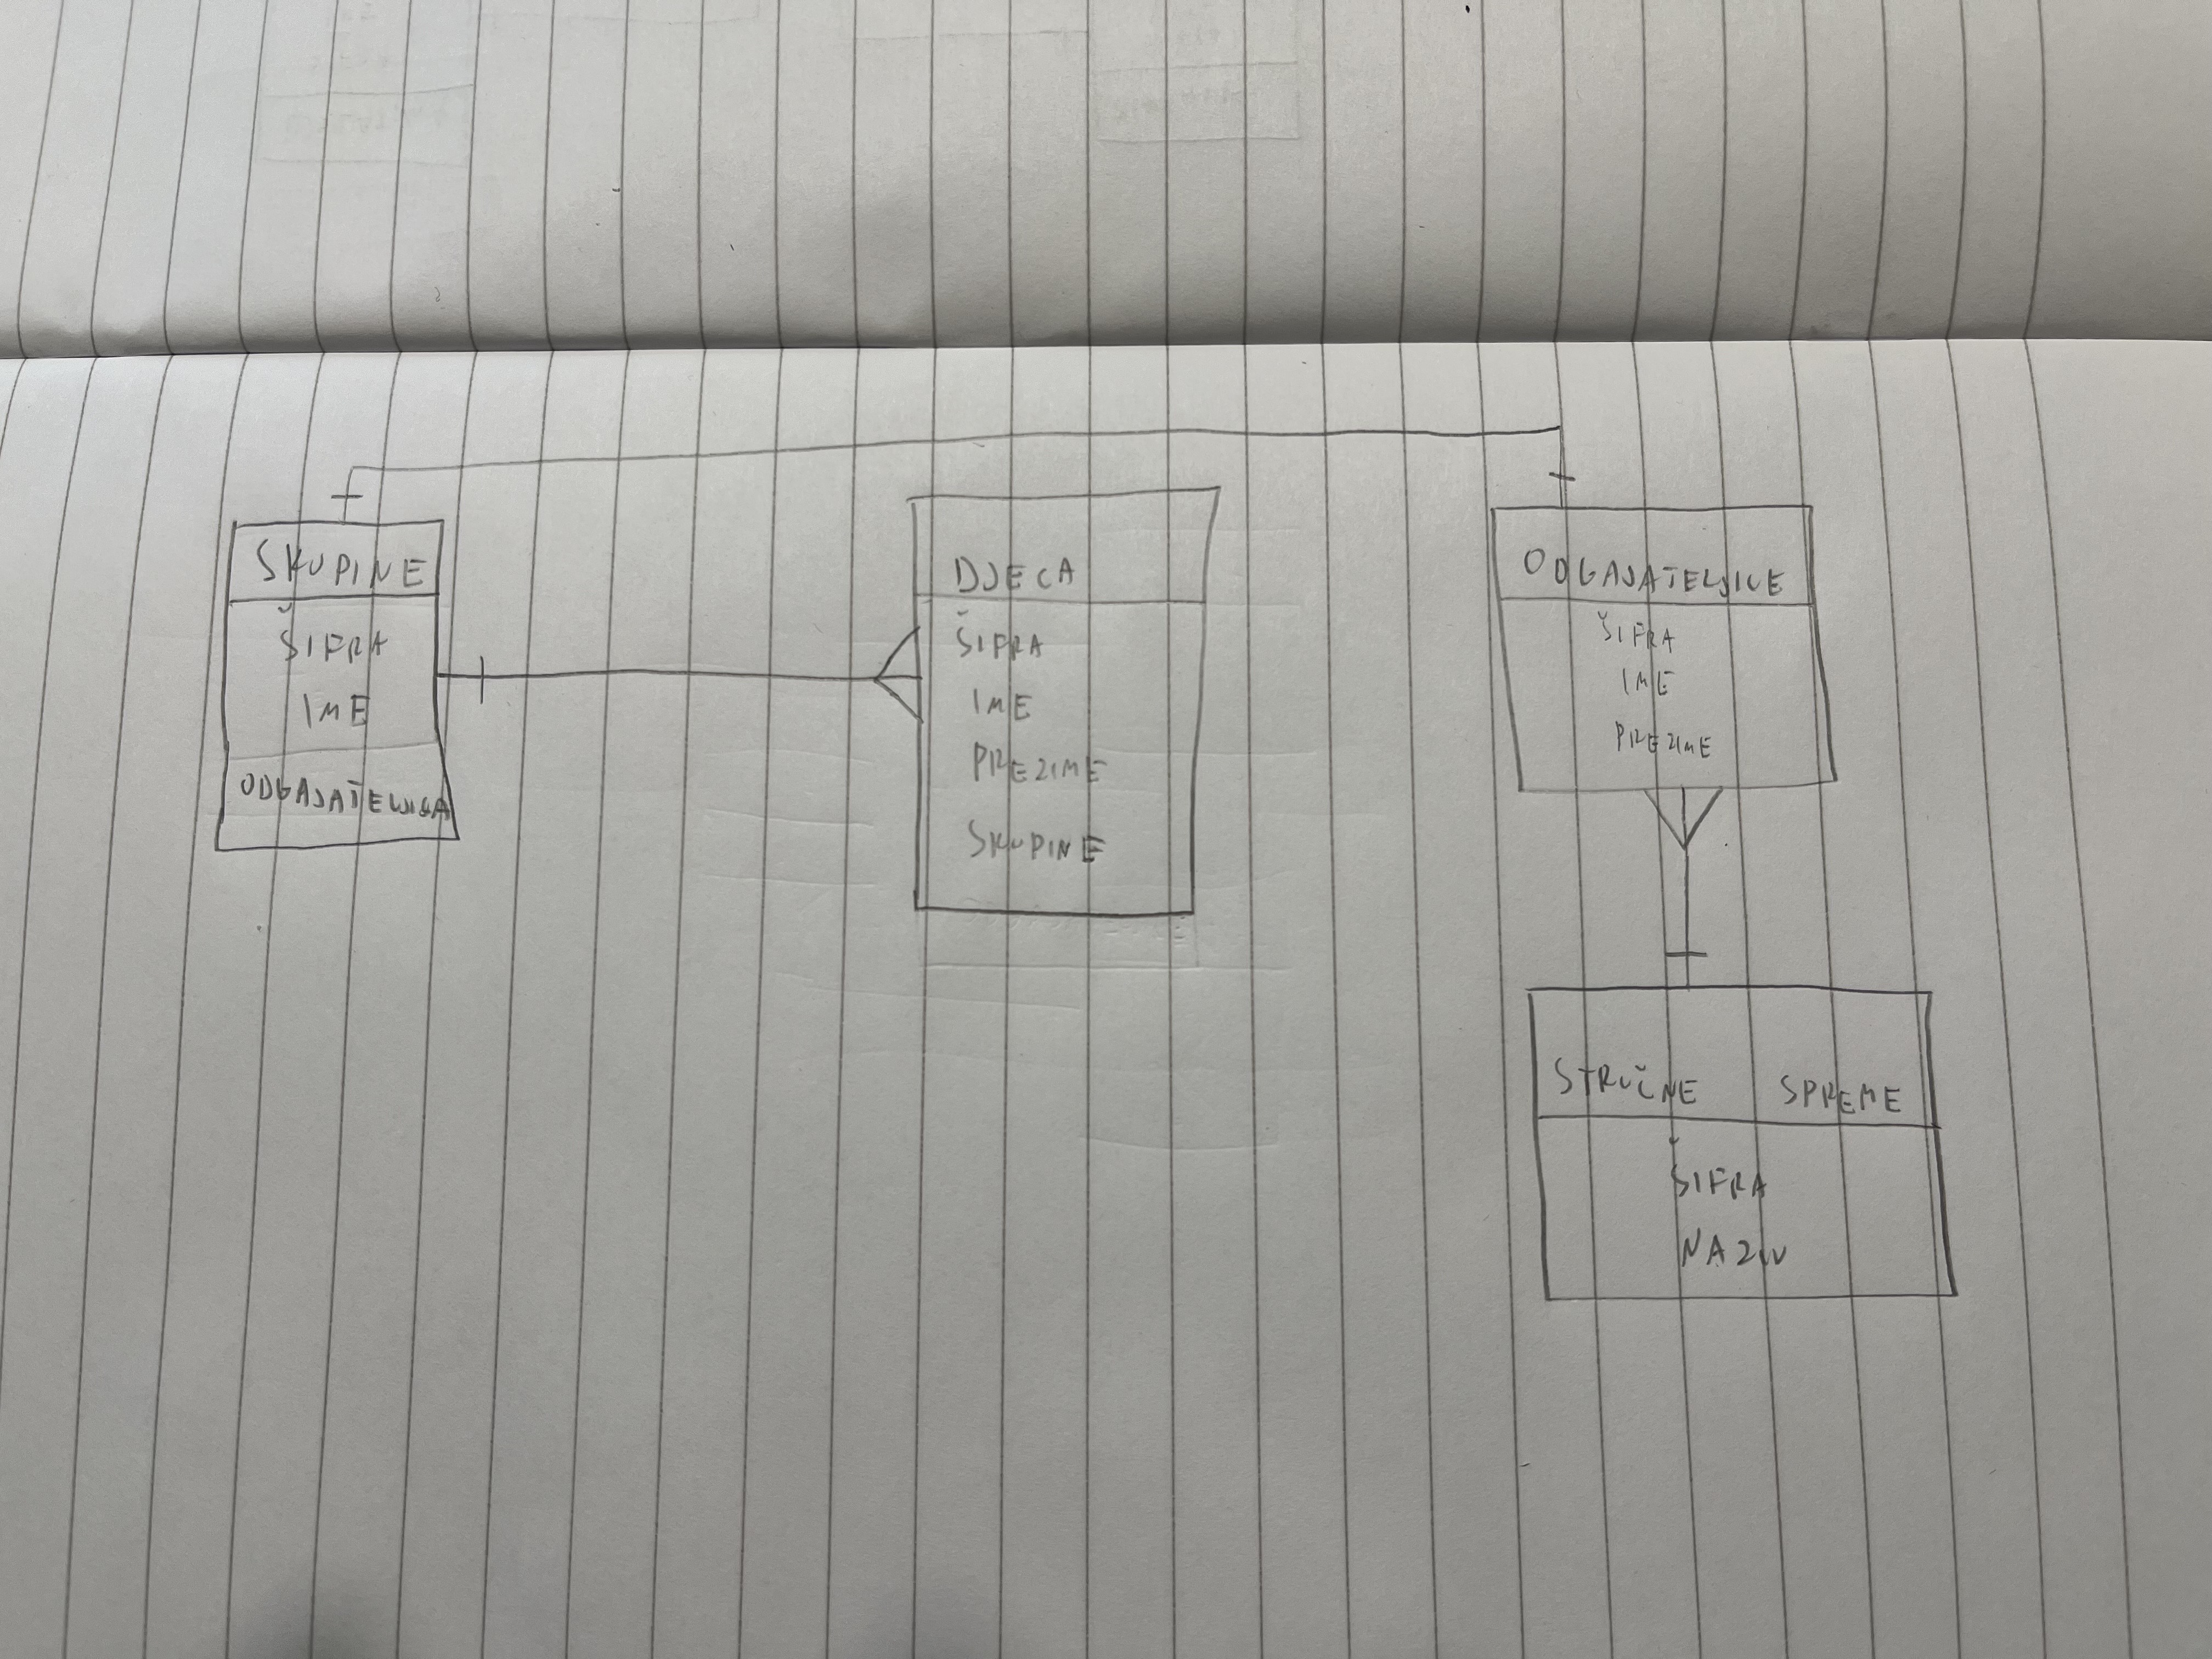 SKUPINE
ŠIFRA
IME
ODGAJATELJICA
DJECA
ŠIFRA
IME
PREZIME
SKUPINE
ODGAJATELJICE
ŠIFRA
IME
PREZIME
STRUČNE SPREME
ŠIFRA
NAZIV